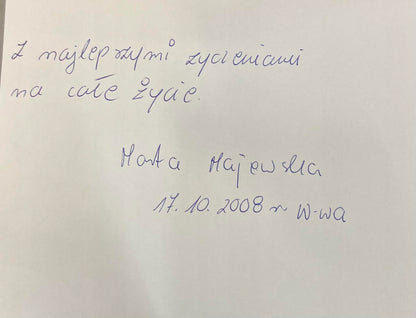 Z najlepszymi życzeniami
na całe życie.
Marta Majewska
17.10.2008 r W-wa